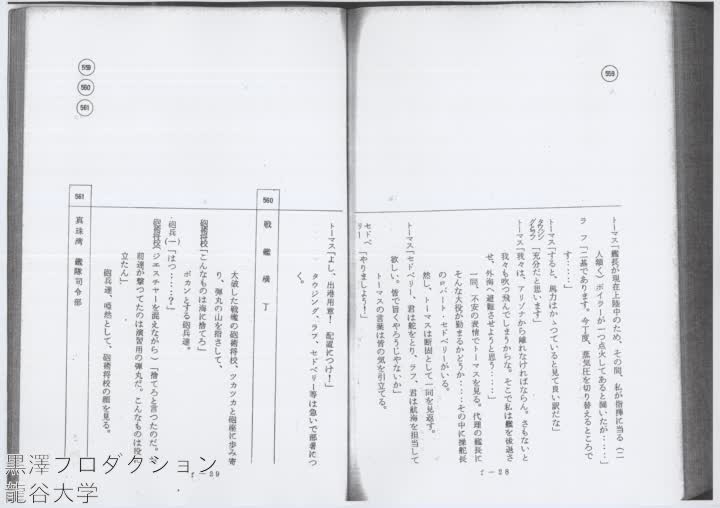 559
トーマス「艦長が現在上陸中のため、その間、私が指揮に当る(二
人頷く)ボイラーが一つ点火してあると聞いたが‥‥」
ラフ「二基であります。今丁度、蒸気圧を切り替えるところで
す‥‥‥」
トーマス「すると、馬力はかゝつていると見て良い訳だな」
タウジング
「充分だと思います」
トーマス「我々は、アリゾナから離れなければならん。さもないと
我々も吹つ飛んでしまうからな。そこで私は艦を後退さ
せ、外海へ避難させようと思う‥‥」
一同、不安の表情でトーマスを見る。代理の艦長に
そんな大役が勤まるかどうか‥‥その中に操舵長
のロバート・セドベリーがいる。
然し、トーマスは断固として一同を見返す。
トーマス「セドベリー、君は舵をとり、ラフ、君は航海を担当して
欲しい。皆で旨くやろうじやないか」
トーマスの言葉は皆の気を引立てる。
セドベリー「やりましよう!」
f—28
トーマス「よし、出港用意! 配置につけ!」
タウジング、ラフ、セドベリー等は急いで部署につ
く。
560 戦艦横丁
大破した戦艦の砲術将校、ツカツカと砲座に歩み寄
り、弾丸の山を指さして、
砲術将校「こんなものは海に捨てろ」
ポカンとする砲兵達。
砲兵(一)「はつ‥‥‥?」
砲術将校(ジエスチヤーを混えながら)「捨てろと言つたのだ。
前達が撃つてたのは演習用の弾丸だ。こんなものは役に
立たん」
砲兵達、唖然として、砲術将校の顔を見る。
561 真珠湾 艦隊司令部
559
560
561
f—29
黒澤プロダクション
龍谷大学